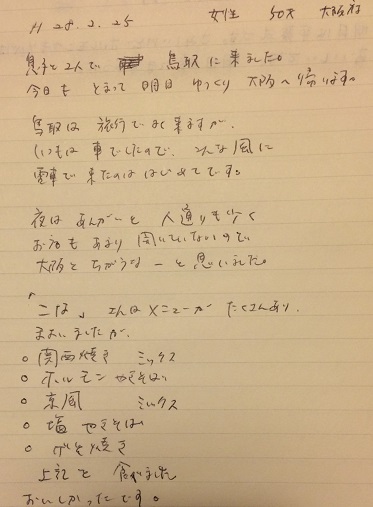 H 28.2.25 女性 50才 大阪府
息子と2人で 鳥取に来ました。
今日もとまって明日ゆっくり大阪へ帰ります。
鳥取は旅行でよく来ますが、
いつもは車でしたので、こんな風に
電車で来たのははじめてです。
夜はあんがーと人通りも少く
お店もあまり開いていないので
大阪とちがうなーと思いました。
「こな」さんはメニューがたくさんあり、
まよいましたが、
○ 関西焼き ミックス
○ ホルモンやきそば
○ 京風 ミックス
○ 塩やきそば
○ ゲソ焼き
上記を食べました
おいしかったです。